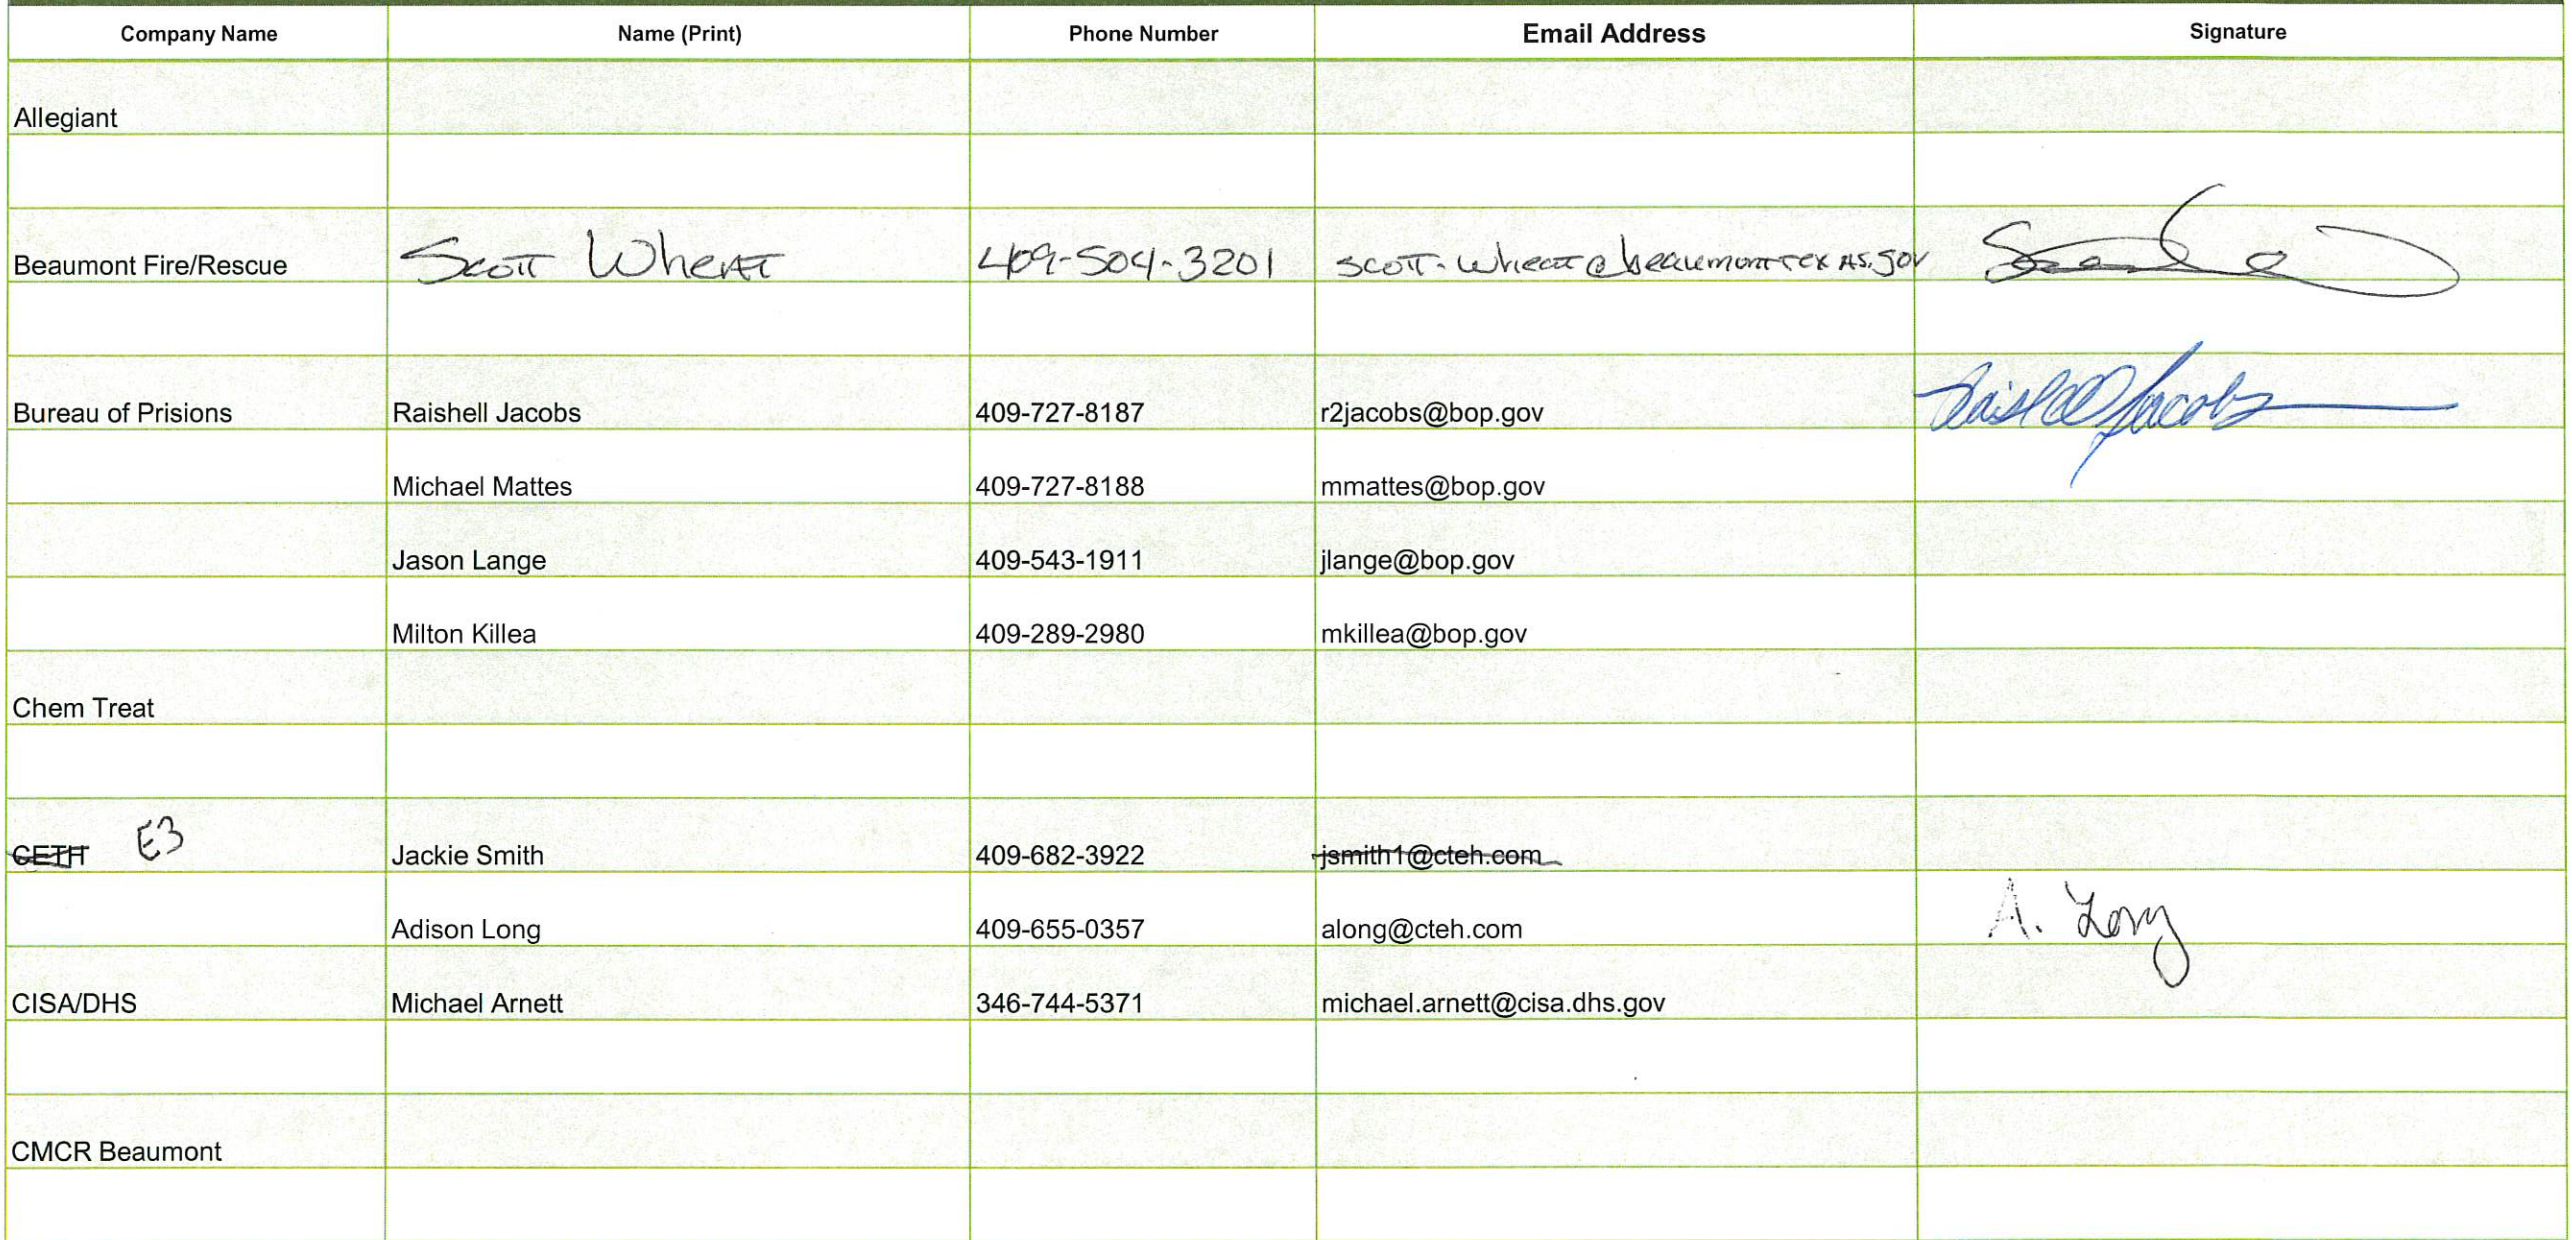 Company Name Name (Print) Phone Number Email Address Signature
Allegiant
Beaumont Fire/Rescue Scott Wheat 409-504-3201 scott.wheat@beaumonttexas.gov
Bureau of Prisions Raishell Jacobs 409-727-8187 r2jacobs@bop.gov Raishell Jacobs
Michael Mattes 409-727-8188 mmattes@bop.gov
Jason Lange 409-543-1911 jlange@bop.gov
Milton Killea 409-289-2980 mkillea@bop.gov
Chem Treat
CETH E3 Jackie Smith 409-682-3922 jsmith1@cteh.com
Adison Long 409-655-0357 along@cteh.com A. Long
CISA/DHS Michael Arnett 346-744-5371 michael.arnett@cisa.dhs.gov
CMCR Beaumont